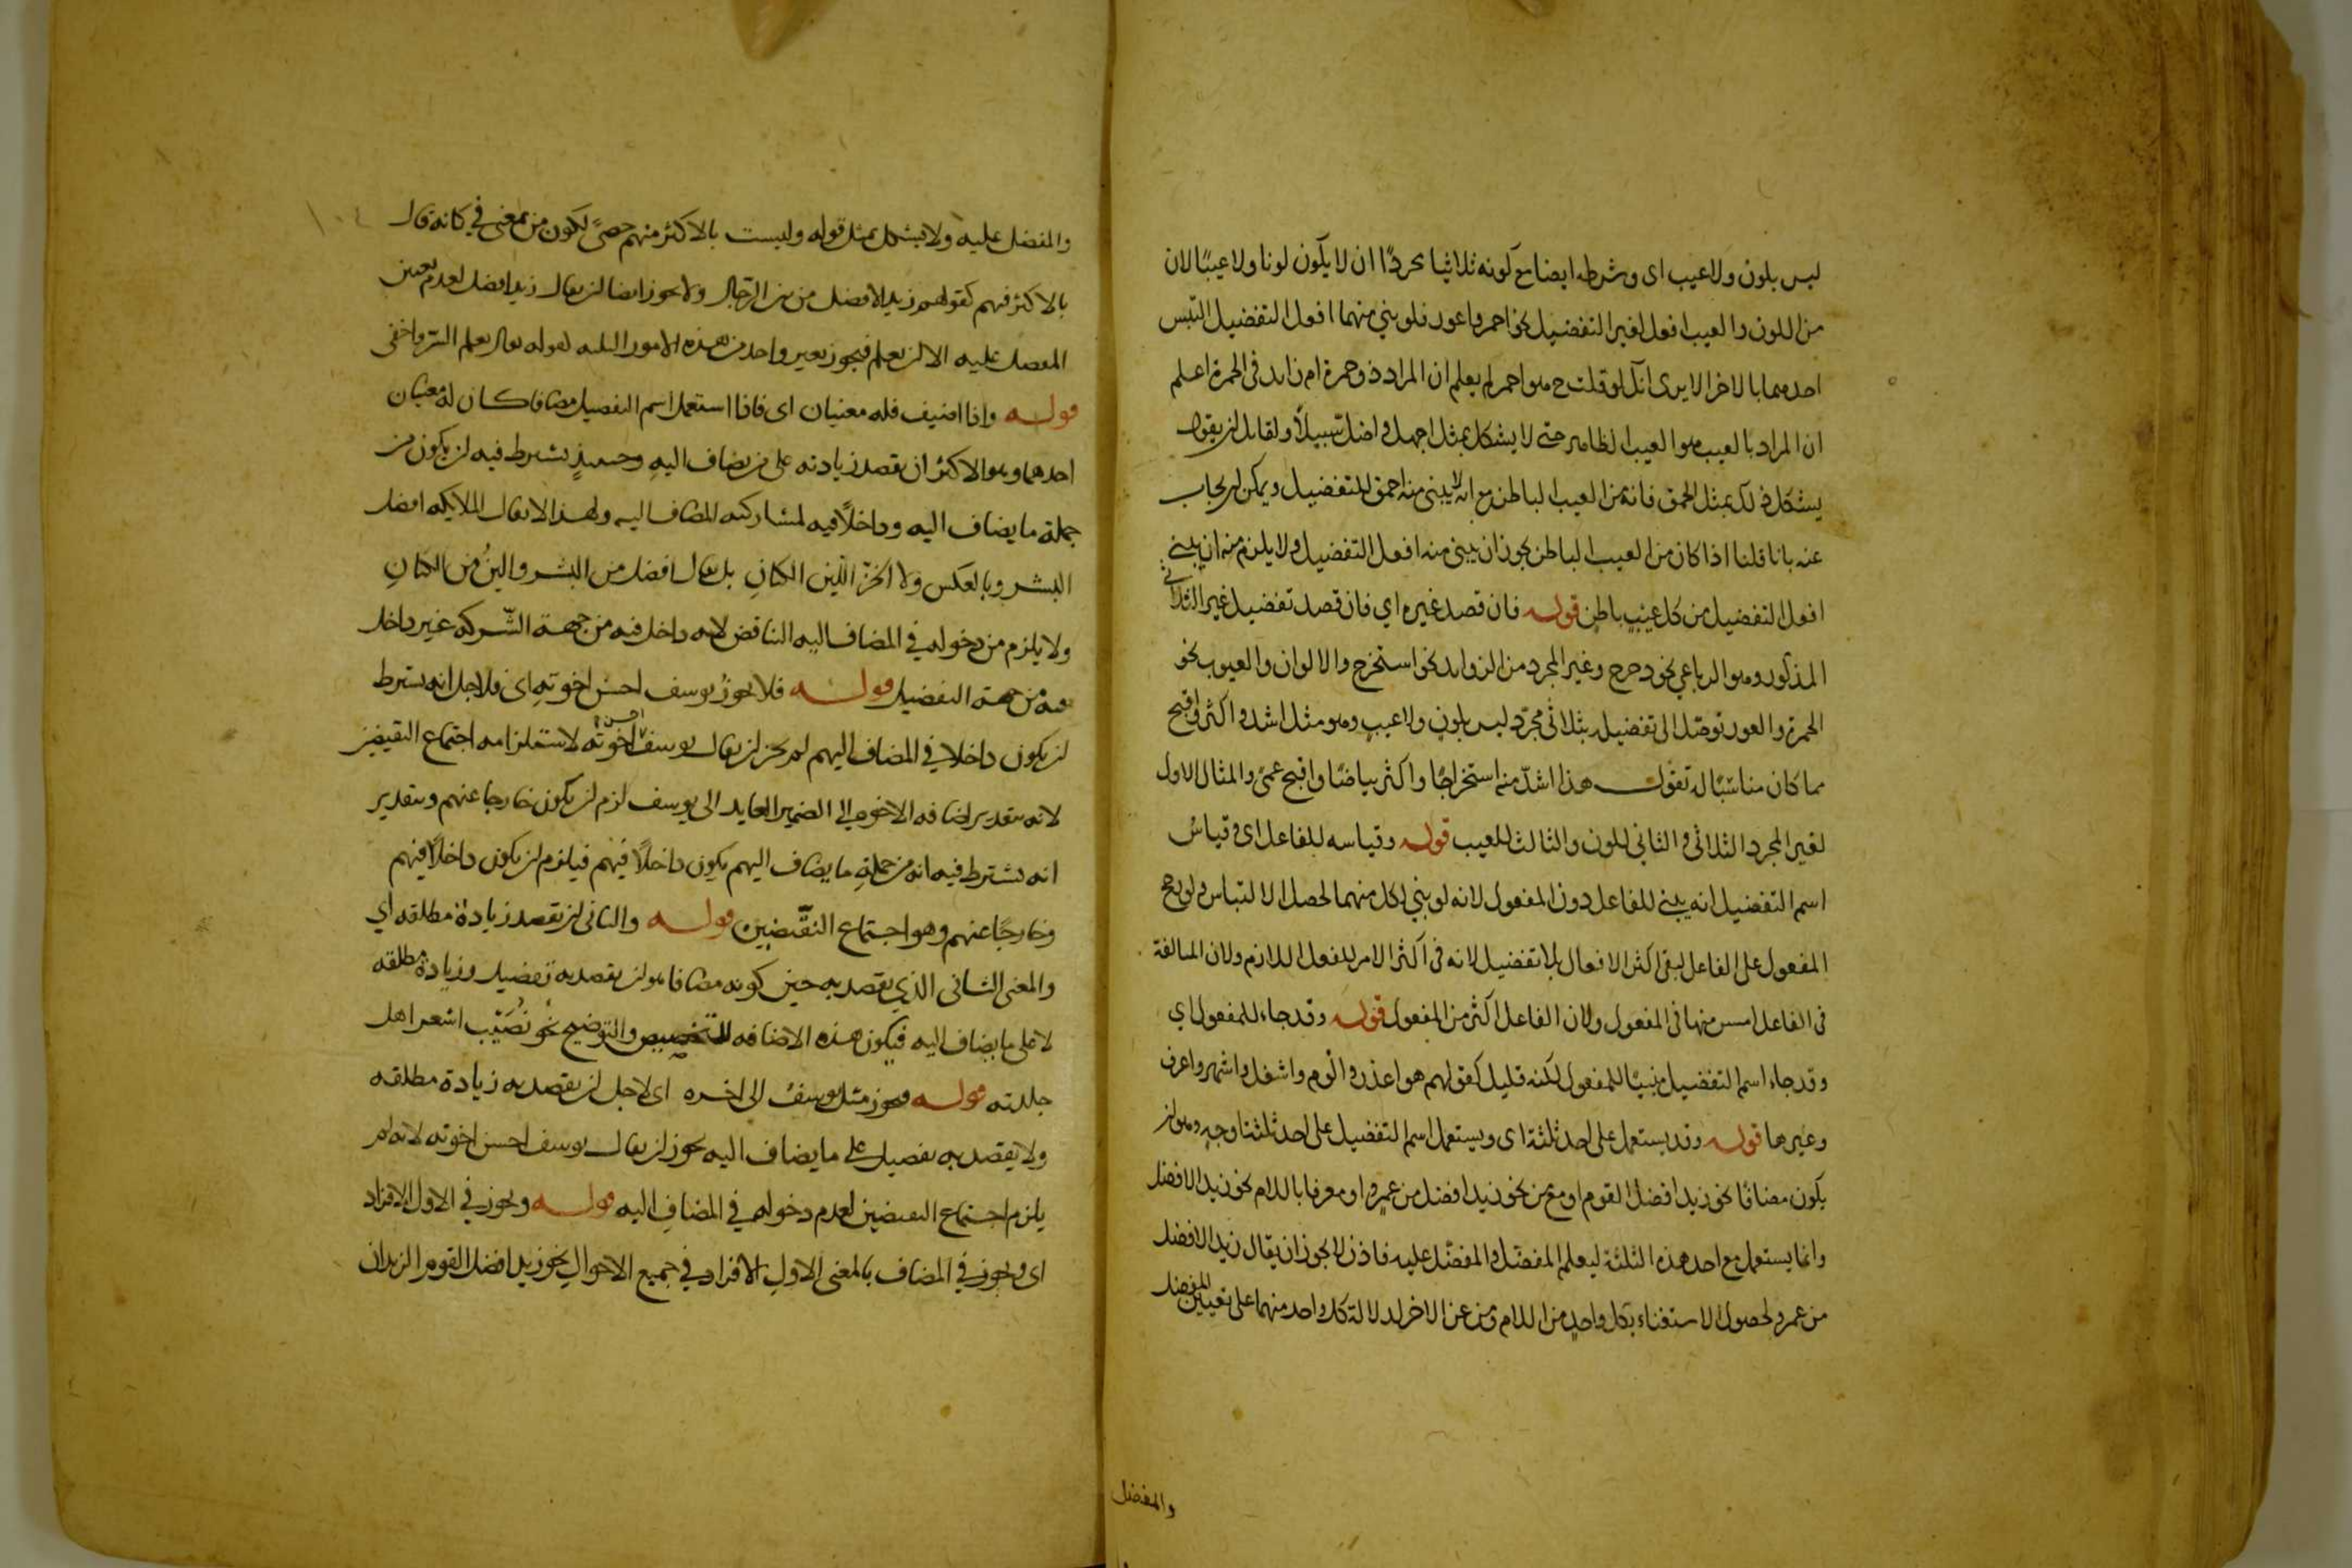 ليس بلون ولا عيب اى وشرطه ايضا مع كونه ثلاثيا مجردًا ان لا يكون لونا ولا عيبًا لان
من اللون والعيب افعل لغير التفضيل نحو احمر واعور فلو بني منهما افعل التفضيل التبس
احدهما بالاخر الا يرى انك لو قلت ح هو احمر لم يعلم ان المراد ذو حمرة ام زايد فى الحمرة اعلم
ان المراد بالعيب هو العيب الظاهر حتى لا يشكل بمثل اجهل واضل سبيلاً ولقايل ان يقول
يشكل ذلك بمثل الحمق فانه من العيب الباطن مع انه لا يبنى منه احمق للتفضيل ويمكن ان يجاب
عنه بانا قلنا اذا كان من العيب الباطن يجوز ان يبنى منه افعل التفضيل ولا يلزم منه ان يبنى
افعل التفضيل من كل عيب باطن قوله فان قصد غيره اي فان قصد تفضيل غير الثلاثي
المذكور وهو الرباعي نحو دحرج وغير المجرد من الزوايد نحو استخرج والالوان والعيوب نحو
الحمرة والعور توصّل الى تفضيله بثلاثي مجرّد ليس بلون ولا عيب وهو مثل اشد واكثر واقبح
مما كان مناسبًا له تقول هذا اشدّ منه استخراجًا واكثر بياضًا واقبح عمىً والمثال الاول
لغير المجرد الثلاثي والثاني للون والثالث للعيب قوله وقياسه للفاعل اى وقياسُ
اسم التفضيل انه يبنى للفاعل دون المفعول لانه لو بني لكل منهما لحصل الالتباس ولو رجح
المفعول على الفاعل لبقى اكثر الافعال بلا تفضيل لانه فى اكثر الامر للفعل اللازم ولان المبالغة
فى الفاعل امس منها فى المفعول ولان الفاعل اكثر من المفعول قوله وقد جاء للمفعول اي
وقد جاء اسم التفضيل مبنيًا للمفعول لكنه قليل كقولهم هو اعذر والوم واشغل واشهر واعرف
وغيرها قوله وقد يستعمل على احد ثلثة اى ويستعمل اسم التفضيل على احد ثلثة اوجه وهو ان
يكون مضافًا نحو زيد افضل القوم او مع من نحو زيد افضل من عمرو او معرفا باللام نحو زيد الافضل
وانما يستعمل مع احد هذه الثلثة ليعلم المفضل والمفضّل عليه فاذن لا يجوز ان يقال زيد الافضل
من عمرو لحصول الاستغناء بكل واحد من اللام ومن عن الاخر لدلالة كل واحد منهما على تعيين المفضل
والمفضل
والمفضل عليه ولا يشكل بمثل قوله وليست بالاكثر منهم حصىً لكون من بمعنى في كانه قال
بالاكثر فيهم كقولهم زيد الافضل من بين الرجال ولا يجوز ايضا ان يقال زيد افضل لعدم تعين
المفضل عليه الا ان يعلم فيجوز بغير واحد من هذه الامور الثلثه لقوله تعالى يعلم السّر واخفى
قوله واذا اضيف فله معنيان اى فاذا استعمل اسم التفضيل مضافا كان له معنيان
احدهما وهو الاكثر ان يقصد زيادته على من يضاف اليه وحينئذٍ يشترط فيه ان يكون من
جملة ما يضاف اليه وداخلاً فيه لمشاركته المضاف اليه ولهذا لا يقال الملايكه افضل
البشر وبالعكس ولا الخزّ الين الكتان بل يقال افضل من البشر والينُ من الكتانِ
ولا يلزم من دخوله في المضاف اليه التناقض لانه داخل فيه من جهة الشّركه غير داخل
فيه من جهة التفضيل قوله فلا يجوزُ يوسف احسن اخوته اى فلاجل انه يشترط
ان يكون داخلا في المضاف اليهم لم يجز ان يقال يوسف احسن اخوته لاستلزامه اجتماع النقيضين
لانه بتقدير اضافه الاخوه الى الضمير العايد الى يوسف لزم ان يكون خارجا عنهم وبتقدير
انه يشترط فيه انه من جملةِ ما يضاف اليهم يكون داخلاً فيهم فيلزم ان يكون داخلاً فيهم
وخارجًا عنهم وهو اجتماع النقيضين قوله والثانى ان يقصد زيادة مطلقه اي
والمعنى الثانى الذي يقصد به حين كونه مضافا هو ان يقصد به تفضيل وزيادة مطلقه
لا على ما يضاف اليه فيكون هذه الاضافه للتخصيص والتوضيح نحو نُصَيْب اشعر اهل
جلدته قوله فيجوز مثل يوسف الى اخره اى لاجل ان يقصد به زيادة مطلقه
ولا يقصد به تفضيل على ما يضاف اليه يجوز ان يقال يوسف احسن اخوته لانه لم
يلزم اجتماع النقيضين لعدم دخوله في المضافِ اليه قوله ويجوز في الاول الافراد
اى ويجوز في المضاف بالمعنى الاولِ الافراد في جميع الاحوال نحو زيد افضل القوم الزيدان